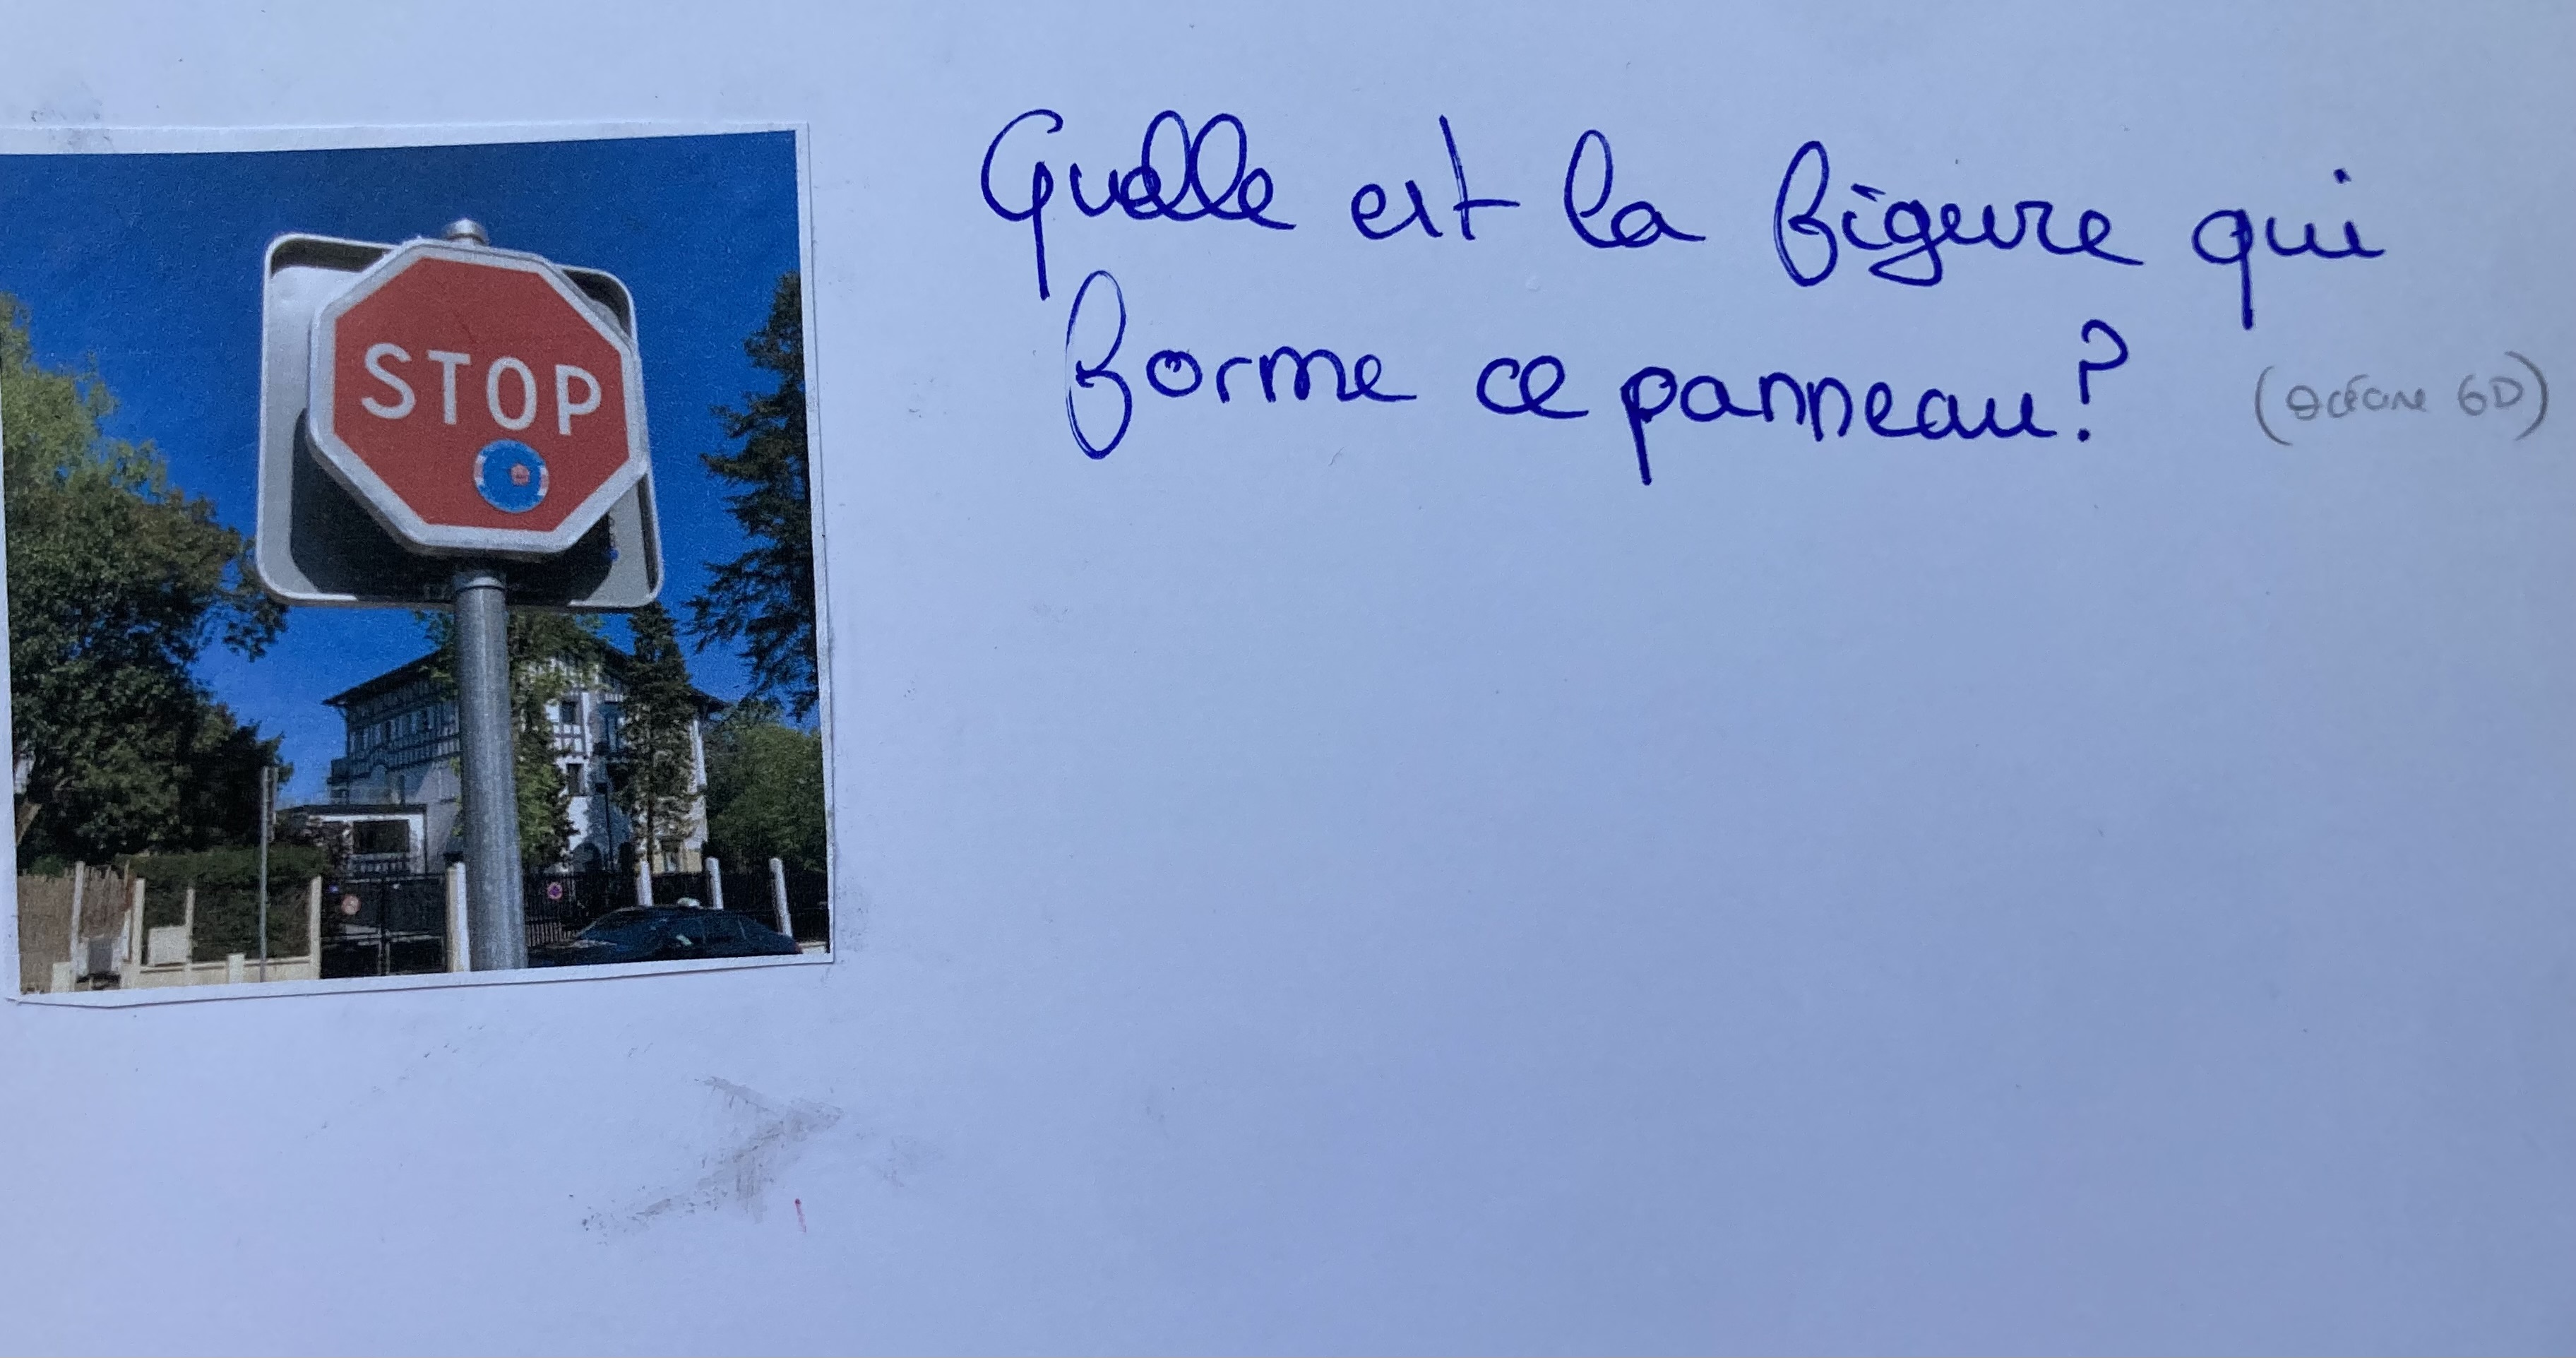 STOP
Quelle est la figure qui
forme ce panneau?
(océane 6D)